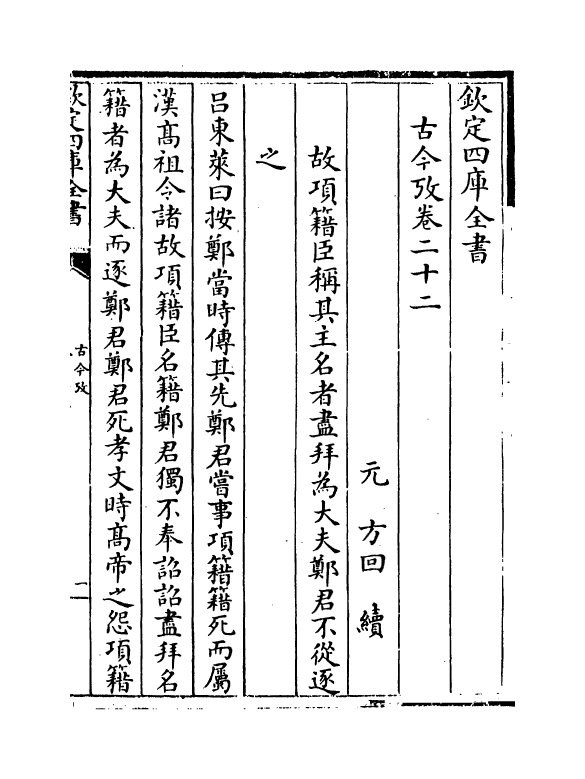 欽定四庫全書
古今攷卷二十二
元 方回 續
故項籍臣稱其主名者盡拜為大夫鄭君不從逐
之
吕東萊曰按鄭當時傳其先鄭君嘗事項籍籍死而屬
漢髙祖令諸故項籍臣名籍鄭君獨不奉詔詔盡拜名
籍者為大夫而逐鄭君鄭君死孝文時髙帝之怨項籍
欽定四庫全書
古今攷